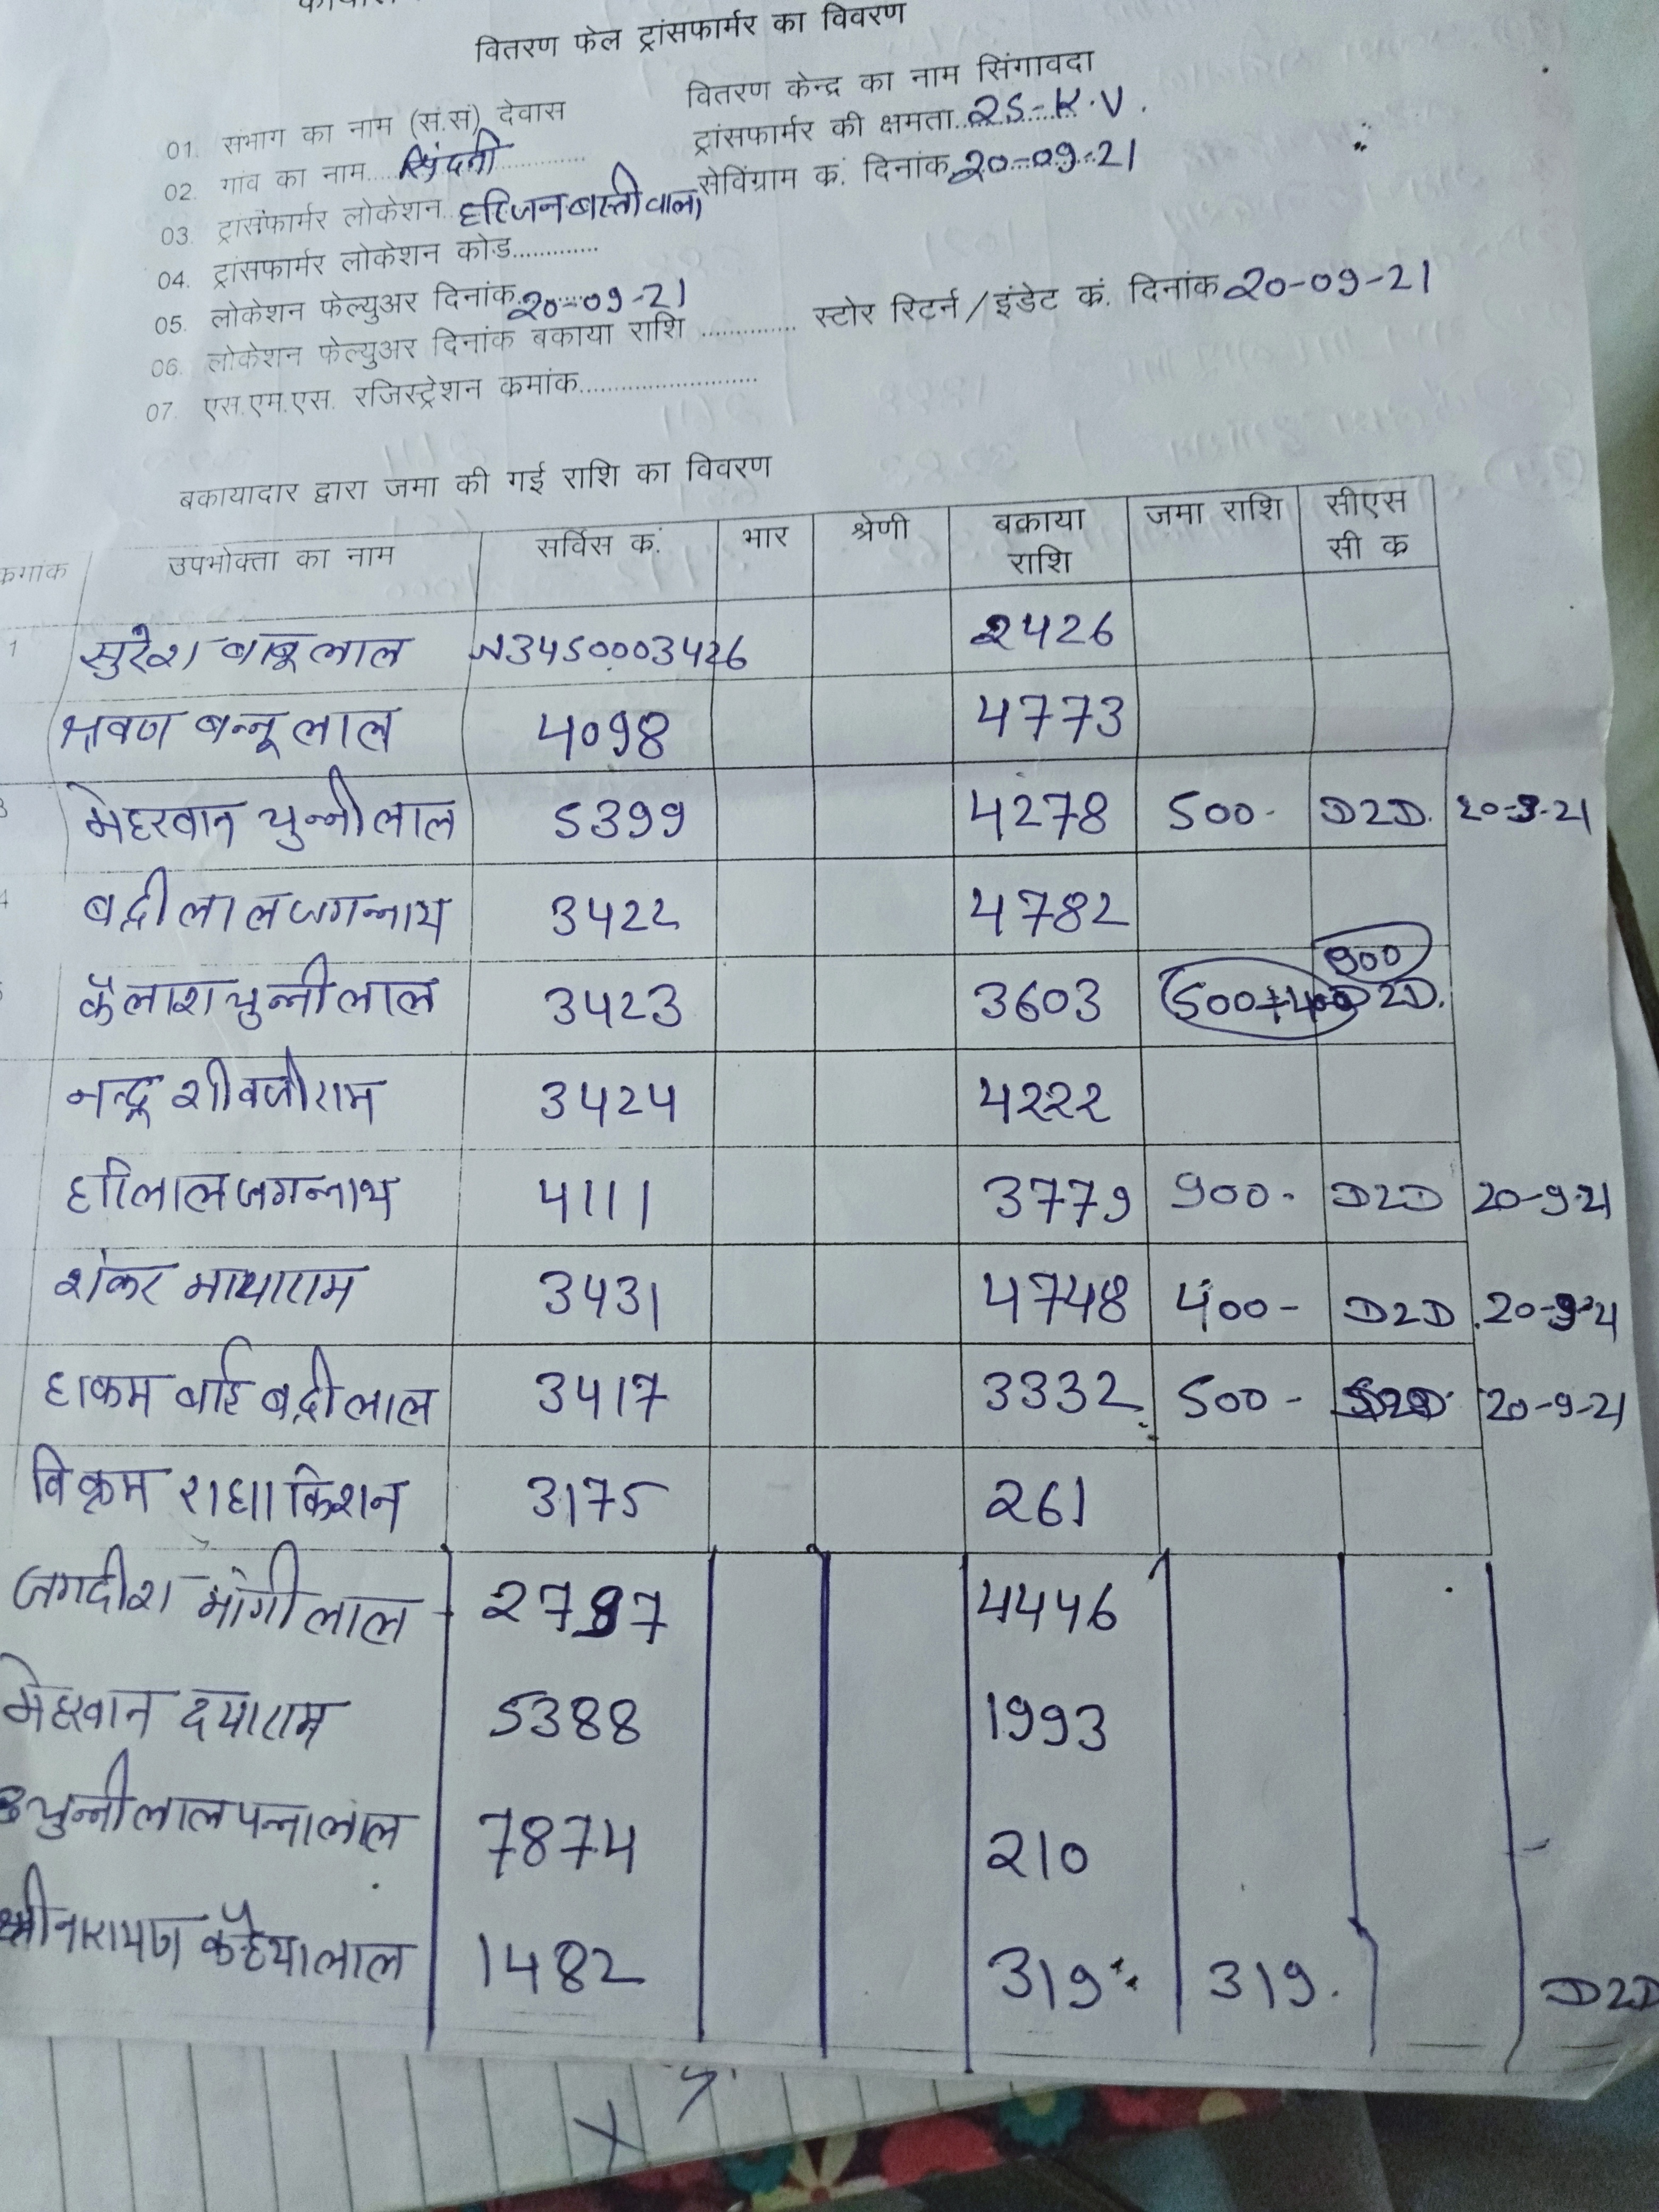 वितरण फेल ट्रांसफार्मर का विवरण
01. संभाग का नाम (सं.स) देवास वितरण केन्द्र का नाम सिंगावदा
02. गांव का नाम..... ट्रांसफार्मर की क्षमता..25-K.V.
03. ट्रांसफार्मर लोकेशन हरिजन बस्ती वाला सेविंग्राम क्रं. दिनांक 20-09-21
04. ट्रांसफार्मर लोकेशन कोड.............
05. लोकेशन फेल्युअर दिनांक 20-09-21
06. लोकेशन फेल्युअर दिनांक बकाया राशि .............. स्टोर रिटर्न/इंडेट कं. दिनांक 20-09-21
07. एस.एम.एस. रजिस्ट्रेशन क्रमांक..........................
बकायादार द्वारा जमा की गई राशि का विवरण
उपभोक्ता का नाम सर्विस क्र. भार श्रेणी बकाया राशि जमा राशि सीएस सी क्र
1 सुरेश बाबूलाल N3450003426 2426
श्रवण बन्नूलाल 4098 4773
3 मेहरवान चुन्नीलाल 5399 4278 500- D2D. 20-9-21
4 बद्रीलाल जगन्नाथ 3422 4782
900
कैलाश चुन्नीलाल 3423 3603 500+400 D2D.
नन्दू शीवजीराम 3424 4222
हरिलाल जगन्नाथ 4111 3779 900- D2D 20-9-21
शंकर मायाराम 3431 4748 400- D2D 20-9-21
हाकम बाई बद्रीलाल 3417 3332 500- D2D 20-9-21
विक्रम राधाकिशन 3175 261
जगदीश मांगीलाल 2797 4446
मेहरवान दयाराम 5388 1993
चुन्नीलाल पन्नालाल 7874 210
श्रीनारायण कन्हैयालाल 1482 319 319. D2D